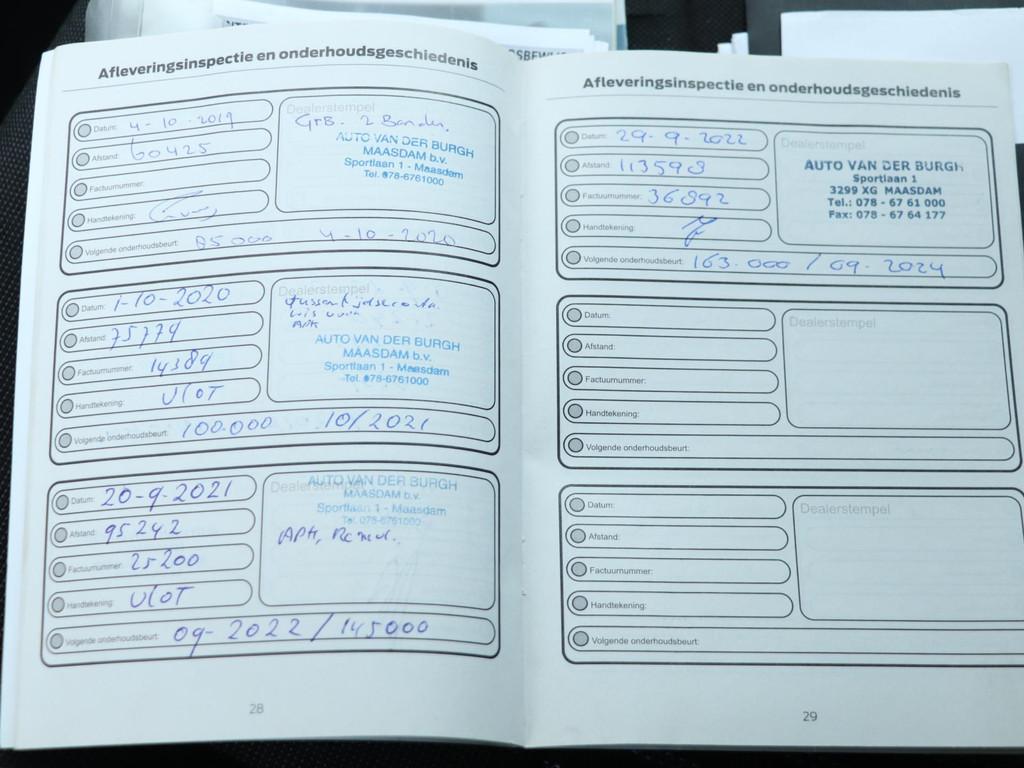 SBEWIJ
Afleveringsinspectie en onderhoudsgeschiedenis
Datum: 4-10-2019
Afstand: 60425
Factuurnummer:
Handtekening:
Volgende onderhoudsbeurt: 85000 4-10-2020
Dealerstempel
GrB. 2 Banden.
AUTO VAN DER BURGH
MAASDAM b.v.
Sportlaan 1 - Maasdam
Tel. 078-6761000
Datum: 1-10-2020
Afstand: 75774
Factuurnummer: 14389
Handtekening: VLOT
Volgende onderhoudsbeurt: 100.000 10/2021
Dealerstempel
APK
AUTO VAN DER BURGH
MAASDAM b.v.
Sportlaan 1 - Maasdam
Tel. 078-6761000
Datum: 20-9-2021
Afstand: 95242
Factuurnummer: 25200
Handtekening: VLOT
Volgende onderhoudsbeurt: 09-2022/145000
Dealerstempel
AUTO VAN DER BURGH
MAASDAM b.v.
Sportlaan 1 - Maasdam
Tel. 078-6761000
APK, Remvl.
28
Afleveringsinspectie en onderhoudsgeschiedenis
Datum: 29-9-2022
Afstand: 113593
Factuurnummer: 36892
Handtekening:
Volgende onderhoudsbeurt: 163.000 / 09-2024
Dealerstempel
AUTO VAN DER BURGH
Sportlaan 1
3299 XG MAASDAM
Tel.: 078 - 67 61 000
Fax: 078 - 67 64 177
Datum:
Afstand:
Factuurnummer:
Handtekening:
Volgende onderhoudsbeurt:
Dealerstempel
Datum:
Afstand:
Factuurnummer:
Handtekening:
Volgende onderhoudsbeurt:
Dealerstempel
29